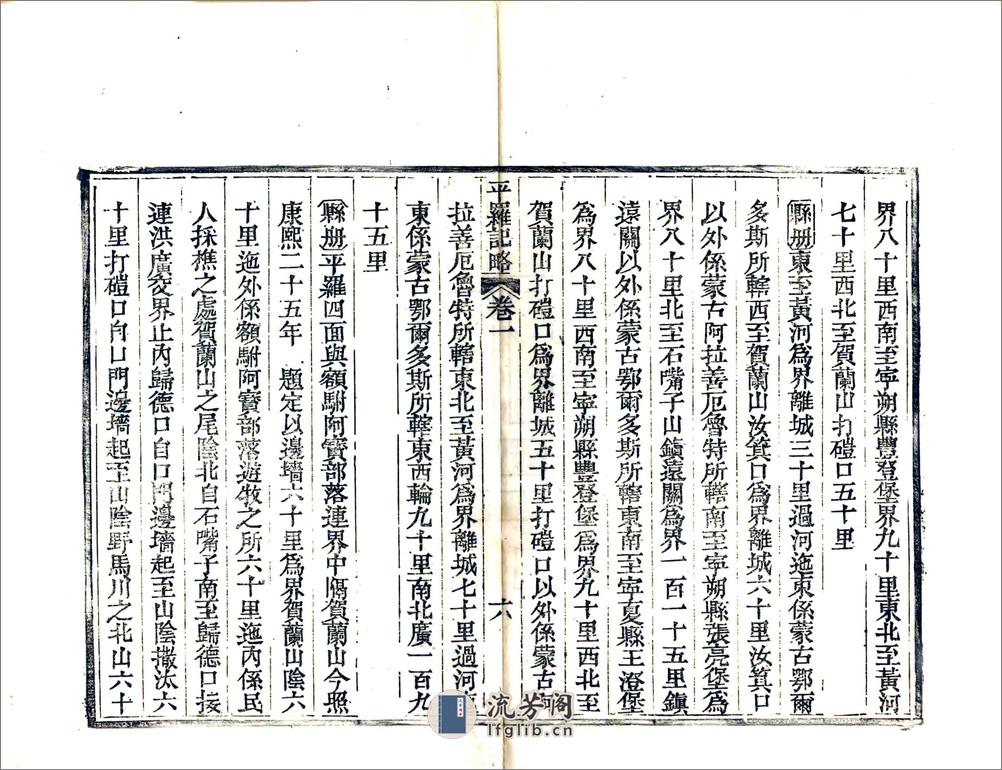 界八十里西南至寧朔縣豐登堡界九十里東北至黃河
七十里西北至賀蘭山打磑口五十里
縣册東至黃河為界離城三十里過河迤東係蒙古鄂爾
多斯所轄西至賀蘭山汝箕口為界離城六十里汝箕口
以外係蒙古阿拉善厄魯特所轄南至寧朔縣張亮堡為
界八十里北至石嘴子山鎮遠關為界一百一十五里鎮
遠關以外係蒙古鄂爾多斯所轄東南至寧夏縣王澄堡
為界八十里西南至寧朔縣豐登堡為界九十里西北至
賀蘭山打磑口為界離城五十里打磑口以外係蒙古阿
平羅記略 卷一 六
拉善厄魯特所轄東北至黃河為界離城七十里過河
東係蒙古鄂爾多斯所轄東西輪九十里南北廣一百九
十五里
縣册平羅四面與額駙阿寶部落連界中隔賀蘭山今照
康熙二十五年 題定以邊墻六十里為界賀蘭山陰六
十里迤外係額駙阿寶部落遊牧之所六十里迤內係民
人採樵之處賀蘭山之尾陰北自石嘴子南至歸德口接
連洪廣交界止內歸德口自口門邊墻起至山陰撒汰六
十里打磑口自口門邊墻起至山陰野馬川之北山六十
流芳阁
lfglib.cn